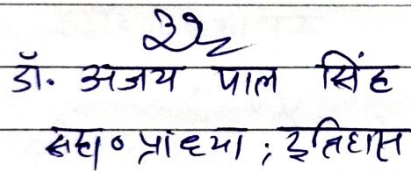 डॉ. अजय पाल सिंह
सहा० प्राध्या; इतिहास